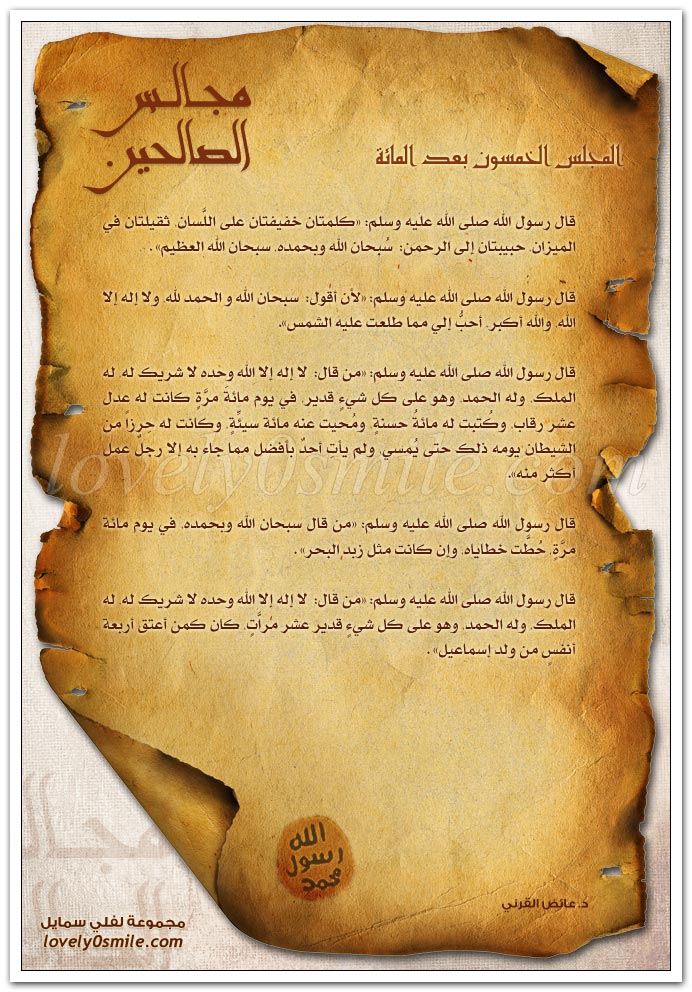 مجالس
الصالحين
المجلس الخمسون بعد المائة
قال رسول الله صلى الله عليه وسلم: «كلمتان خفيفتان على اللَّسان، ثقيلتان في
الميزان، حبيبتان إلى الرحمن: سُبحان الله وبحمده، سبحان الله العظيم» .
قال رسول الله صلى الله عليه وسلم: «لأن أقُول: سبحان الله و الحمد لله، ولا إله إلا
الله، والله أكبر، أحبُّ إلي مما طلعت عليه الشمس».
قال رسول الله صلى الله عليه وسلم: «من قال: لا إله إلا الله وحده لا شريك له، له
الملك، وله الحمد، وهو على كل شيءٍ قدير، في يوم مائة مرَّةٍ كانت له عدل
عشر رقاب، وكُتبت له مائةُ حسنةٍ، ومُحيت عنه مائة سيئَّةٍ، وكانت له حرزاً من
الشيطان يومه ذلك حتى يُمسي، ولم يأتِ أحدٌ بأفضل مما جاء به إلا رجلٌ عمل
أكثر منه».
قال رسول الله صلى الله عليه وسلم: «من قال سبحان الله وبحمده، في يوم مائة
مرَّةٍ، حُطَّت خطاياه، وإن كانت مثل زبد البحر» .
قال رسول الله صلى الله عليه وسلم: «من قال: لا إله إلا الله وحده لا شريك له، له
الملك، وله الحمد، وهو على كل شيءٍ قدير عشر مُرأَّتٍ، كان كمن أعتق أربعة
أنفسٍ من ولد إسماعيل» .
lovely0smile.com
الله
رسول
محمد
د.عائض القرني
مجموعة لفلي سمايل
lovely0smile.com